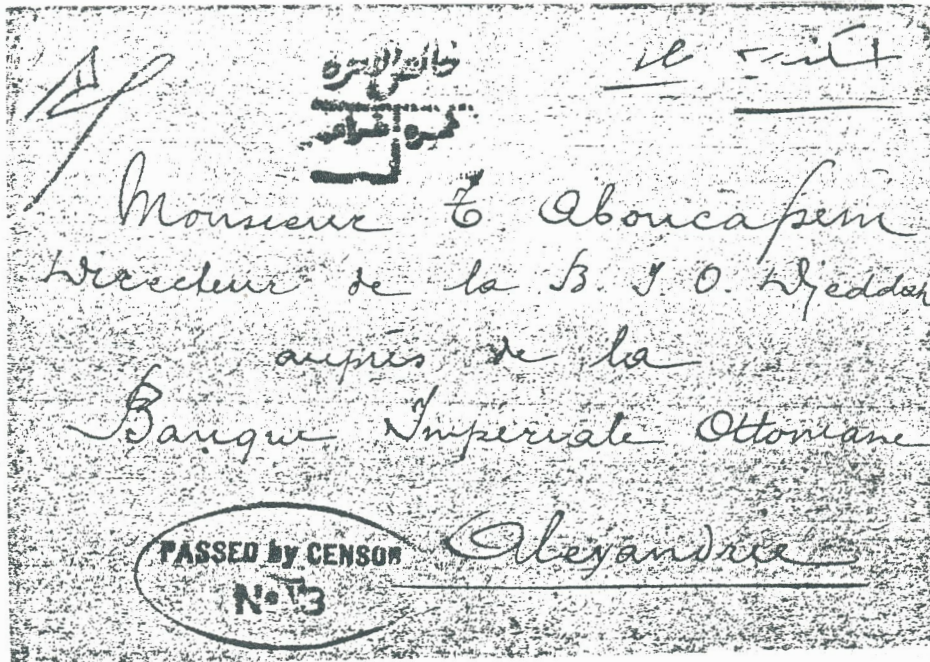 خالص الاجره
Monsieur E Aboucassem
Directeur de la B. I. O. Djeddah
auprès de la
Banque Impériale Ottomane
Alexandrie
PASSED by CENSOR
No 3